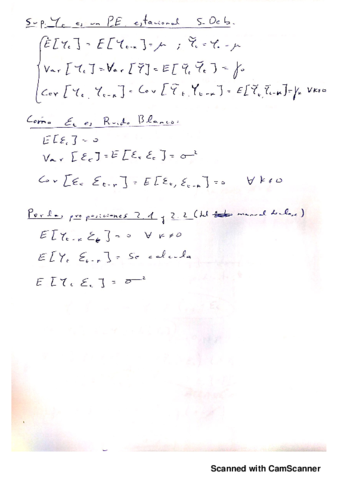 Sup. Yt es un P.E. estacional S. Deb.
E[Yt] = E[Yt-k] = μ ; Ỹt = Yt - μ
Var[Yt] = Var[Ỹ] = E[Ỹt Ỹt] = γ₀
Cov[Yt, Yt-k] = Cov[Ỹt, Ỹt-k] = E[Ỹt, Ỹt-k] = γk ∀k≠0
Como Et es Ruido Blanco:
E[Et] = 0
Var[Et] = E[Et Et] = σ²
Cov[Et Et-k] = E[Et, Et-k] = 0 ∀ k≠0
Por las proposiciones 2.1 y 2.2 (del manual de clase)
E[Yt-k Et] = 0 ∀ k≠0
E[Yt Et-k] = se calcula
E[Yt Et] = σ²
Scanned with CamScanner